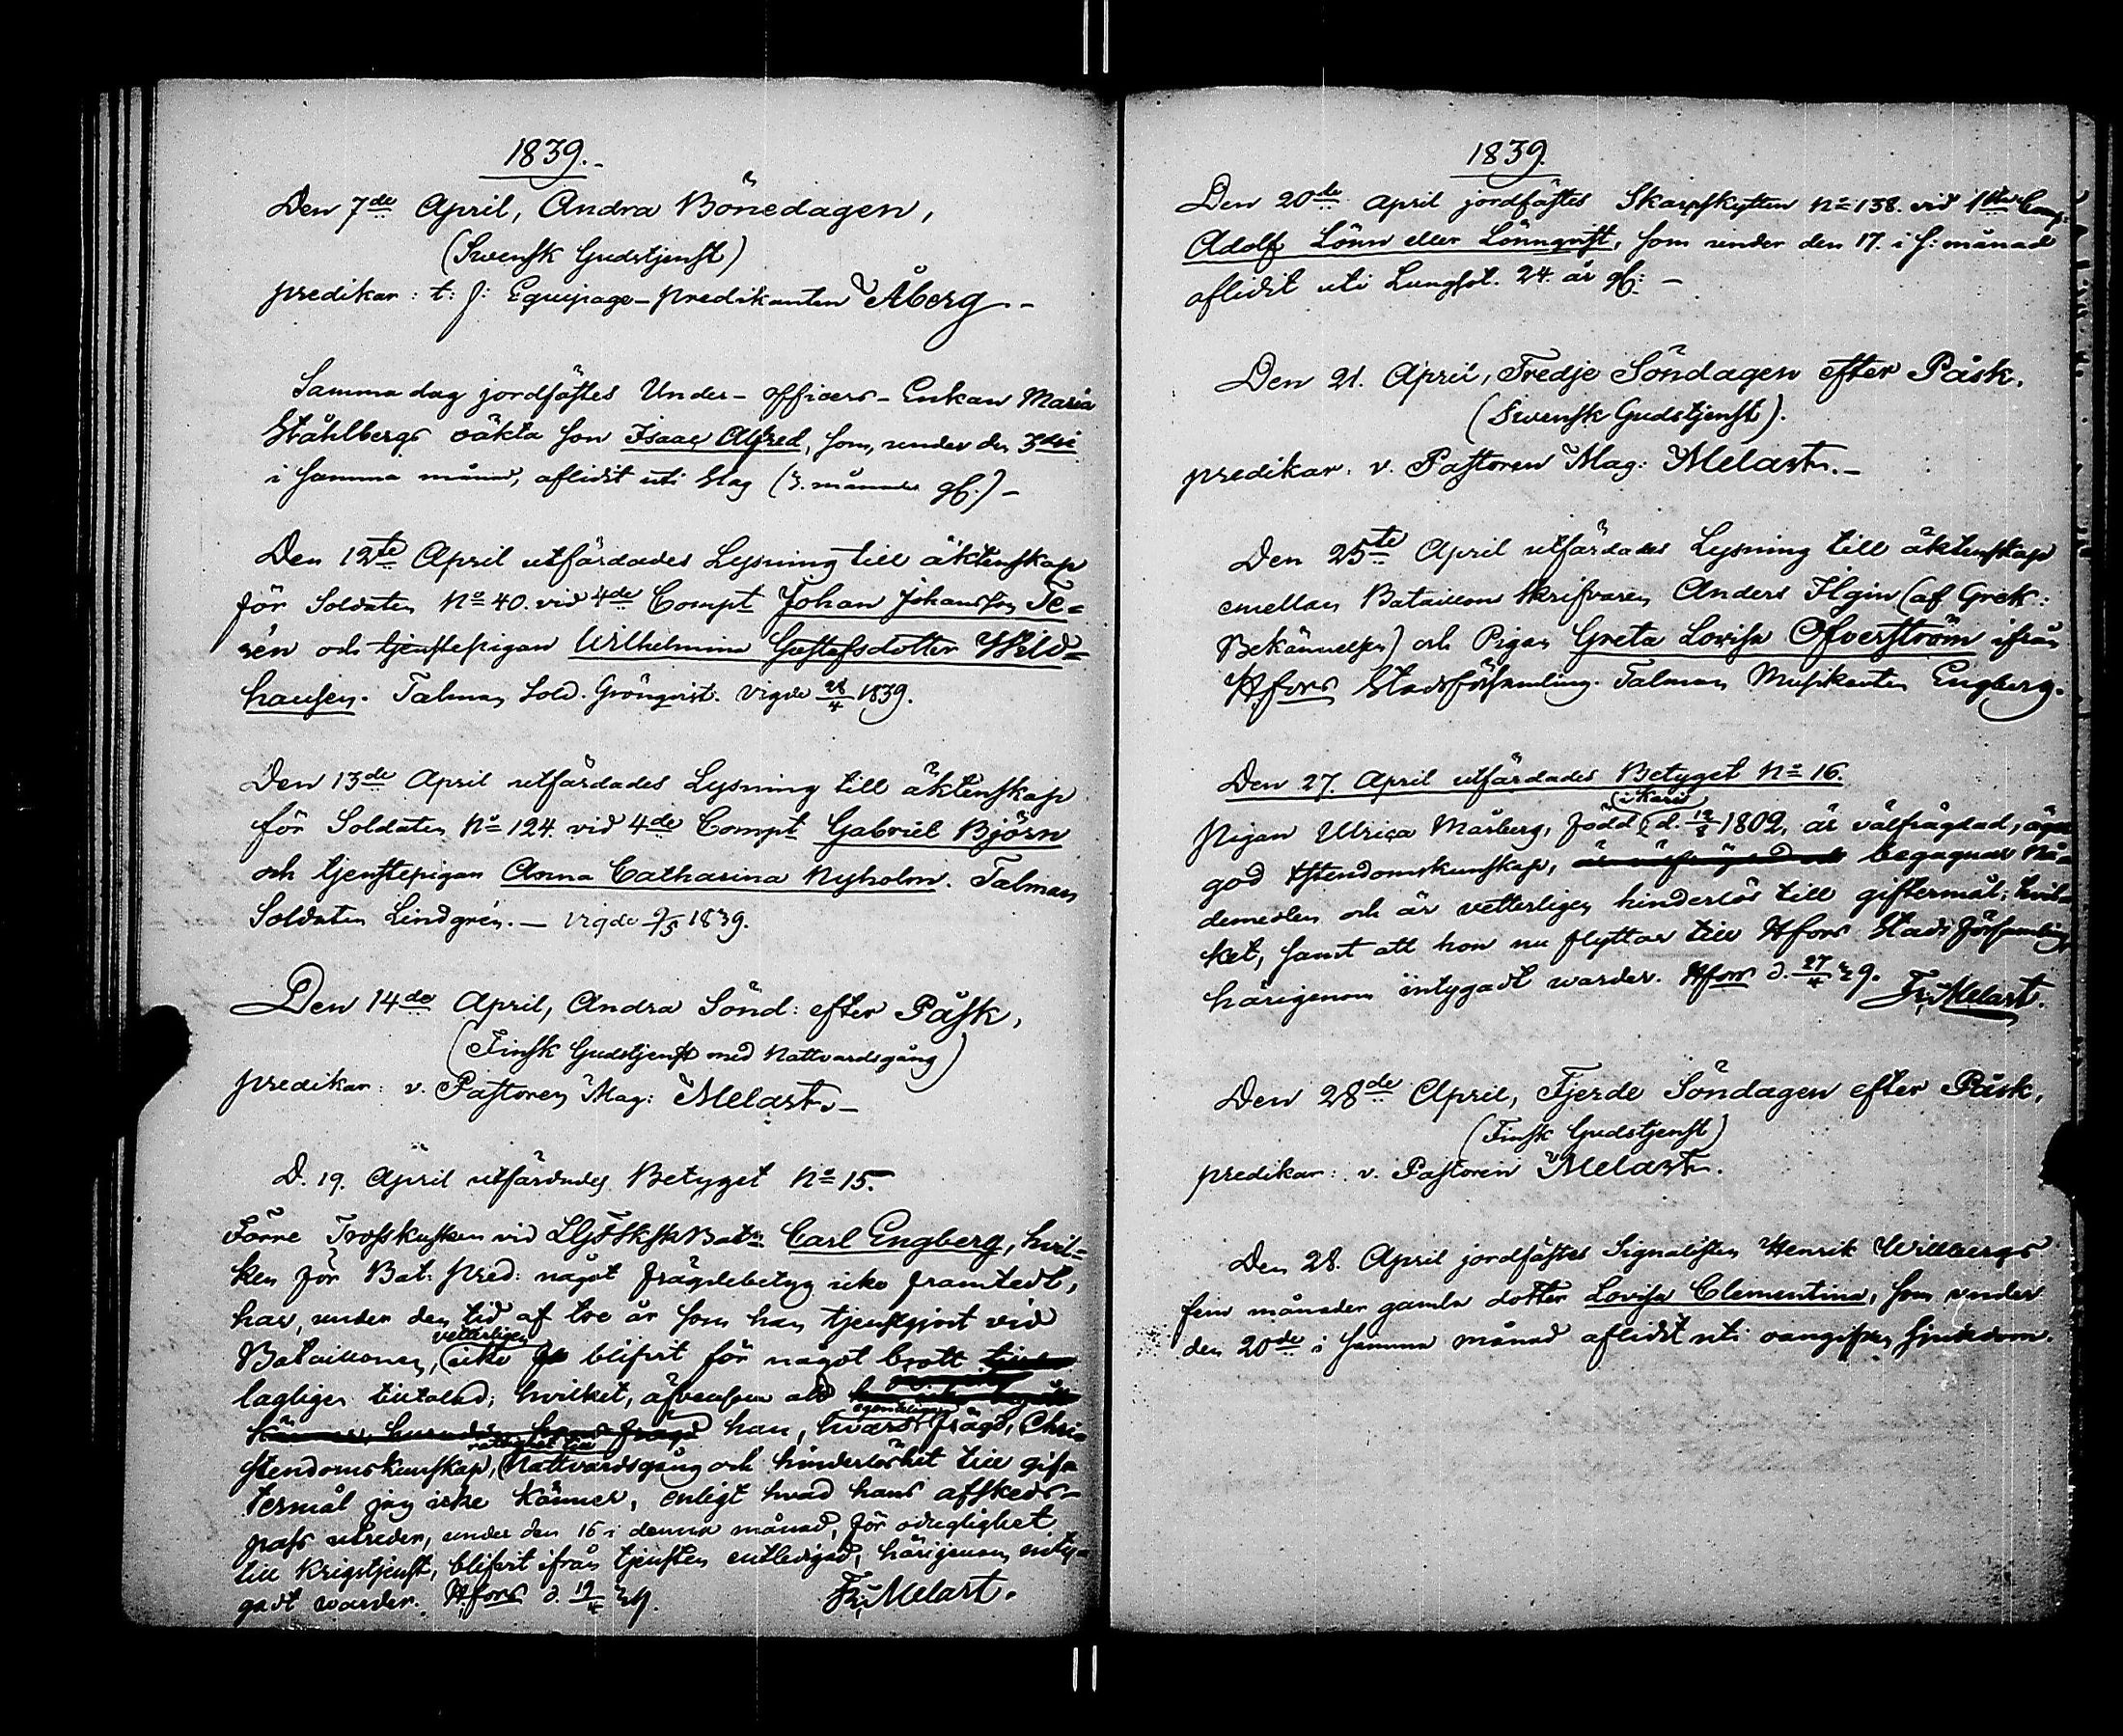 1839.
Den 7de April, Andra Bönedagen,
(Swensk Gudstjenst)
predikar: t: f: Equipage-predikanten Åberg.-
Samma dag jordfästes Under-officers-Enkan Maria
Ståhlbergs oäkta son Isaac Alfred, som, under den 3die
i samma månad, aflidit uti Slag (3. månader gl.)-
Den 12te April utfärdades Lysning till äktenskap
för Soldaten No 40. vid 4de Compt Johan Johansson Te=
rén och tjenstepigan Wilhelmina Gustafsdotter Wild=
hausen. Talman Sold. Grönqvist. Vigde 28/4 1839.
Den 13de April utfärdades Lysning till äktenskap
för Soldaten No 124. vid 4de Compt Gabriel Björn
och tjenstepigan Anna Catharina Nyholm. Talman
Soldaten Lindgrén.- Vigde 9/5 1839.
Den 14de April, Andra Sönd: efter Påsk,
(Finsk Gudstjenst med Nattvardsgång)
predikar: v. Pastoren Mag: Melart.-
D. 19. April utfärdades Betyget No 15.
Förre Trosskusken vid Batn Carl Engberg, hvil=
ken för Bat: Pred: något frägdebetyg icke framtedt,
har, under den tid af tre år som han tjenstgjort vid
Bataillonen, (vetterligen icke blifvit för något brott
lagligen tilltalad; hvilket, äfvensom att
han, hvars egentliga frägd, Chri=
stendomskunskap, (rättighet till Nattvardsgång och hinderlöshet till gif=
termål jag icke känner, enligt hvad hans afskeds-
pass utreder, under den 16 i denna månad, för oduglighet
till krigstjenst, blifvit ifrån tjensten entledigad, härigenom inty=
gadt warder. Hfors d. 19/4 39. Fr. Melart.
1839.
Den 20de April jordfästes Skarpskytten No 138. vid 1sta Comp.
Adolf Lönn eller Lönnqvist, som under den 17. i s: månad
aflidit uti Lungsot. 24. år gl: -
Den 21. April, Tredje Söndagen efter Påsk,
(Swensk Gudstjenst).
predikar: v. Pastoren Mag: Melart.-
Den 25te April utfärdades Lysning till äktenskap
emellan Bataillons Skrifvaren Anders Ilgin (af Grek:
Bekännelsen) och Pigan Greta Lovisa Öfverström ifrån
Hfors Stadsförsamling. Talman Musikanten Engberg.
Den 27. April utfärdades Betyget No 16.
Pigan Ulrica Mårberg, född (i Karis d. 12/8 1802, är välfrägdad, äger
god Christendomskunskap, begagnar Nå=
demedlen och är vetterligen hinderlös till giftermål; hvil=
ket, samt att hon nu flyttar till Hfors Stads församling,
härigenom intygadt warder. Hfors d. 27/4 39. Fr. Melart.
Den 28de April, Fjerde Söndagen efter Påsk,
(Finsk Gudstjenst)
predikar: v. Pastoren Melart.
Den 28. April jordfästes Signalisten Henrik Willbergs
fem månader gamla dotter Lovisa Clementina, som under
den 20de i samma månad aflidit uti oangifven sjukdom.